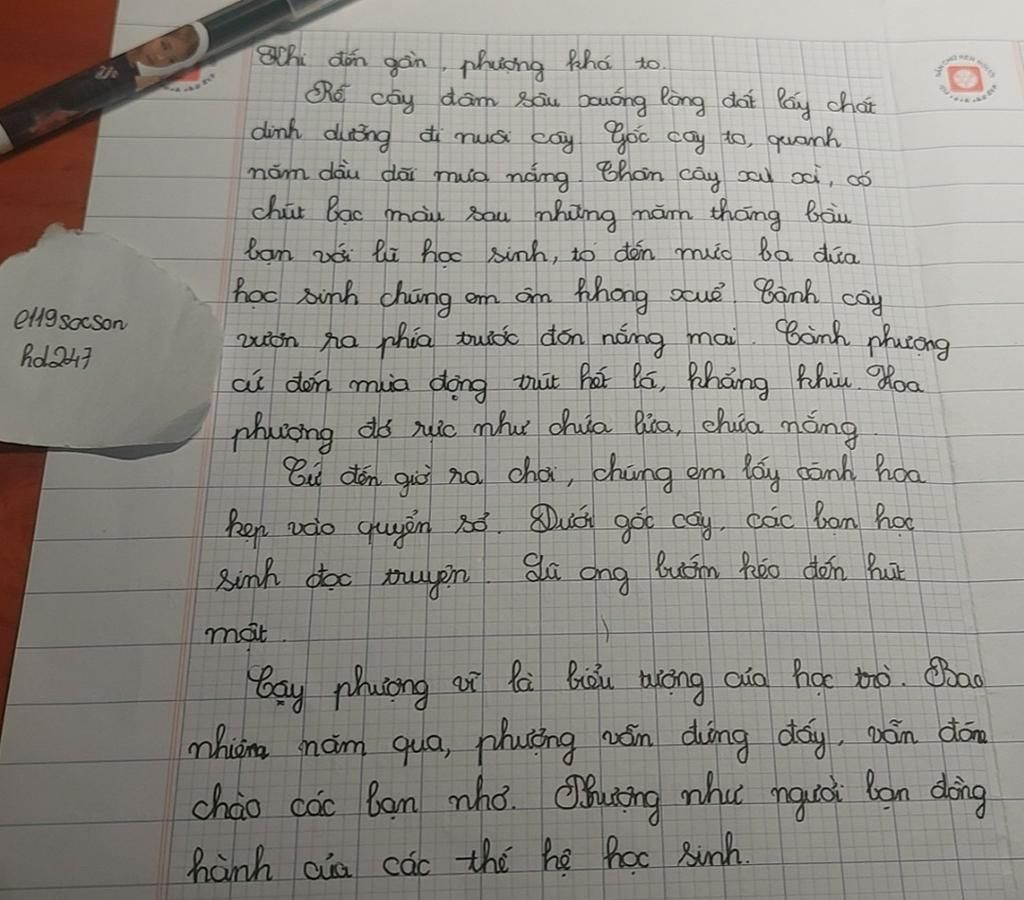 Khi đến gần, phượng khá to.
Rễ cây đâm sâu xuống lòng đất lấy chất
dinh dưỡng đi nuôi cây. Gốc cây to, quanh
năm dầu dãi mưa nắng. Thân cây xù xì, có
chút bạc màu sau những năm tháng bầu
bạn với lũ học sinh, to đến mức ba đứa
học sinh chúng em ôm không xuể. Cành cây
vươn ra phía trước đón nắng mai. Cành phượng
cứ đến mùa đông trút hết lá, khẳng khiu. Hoa
phượng đỏ rực như chứa lửa, chứa nắng.
Cứ đến giờ ra chơi, chúng em lấy cánh hoa
kẹp vào quyển sổ. Dưới gốc cây, các bạn học
sinh đọc truyện. Lũ ong bướm kéo đến hút
mật.
Cây phượng vĩ là biểu tượng của học trò. Bao
nhiêu năm qua, phượng vẫn đứng đấy, vẫn đón
chào các bạn nhỏ. Phượng như người bạn đồng
hành của các thế hệ học sinh.
e119socson
hd247